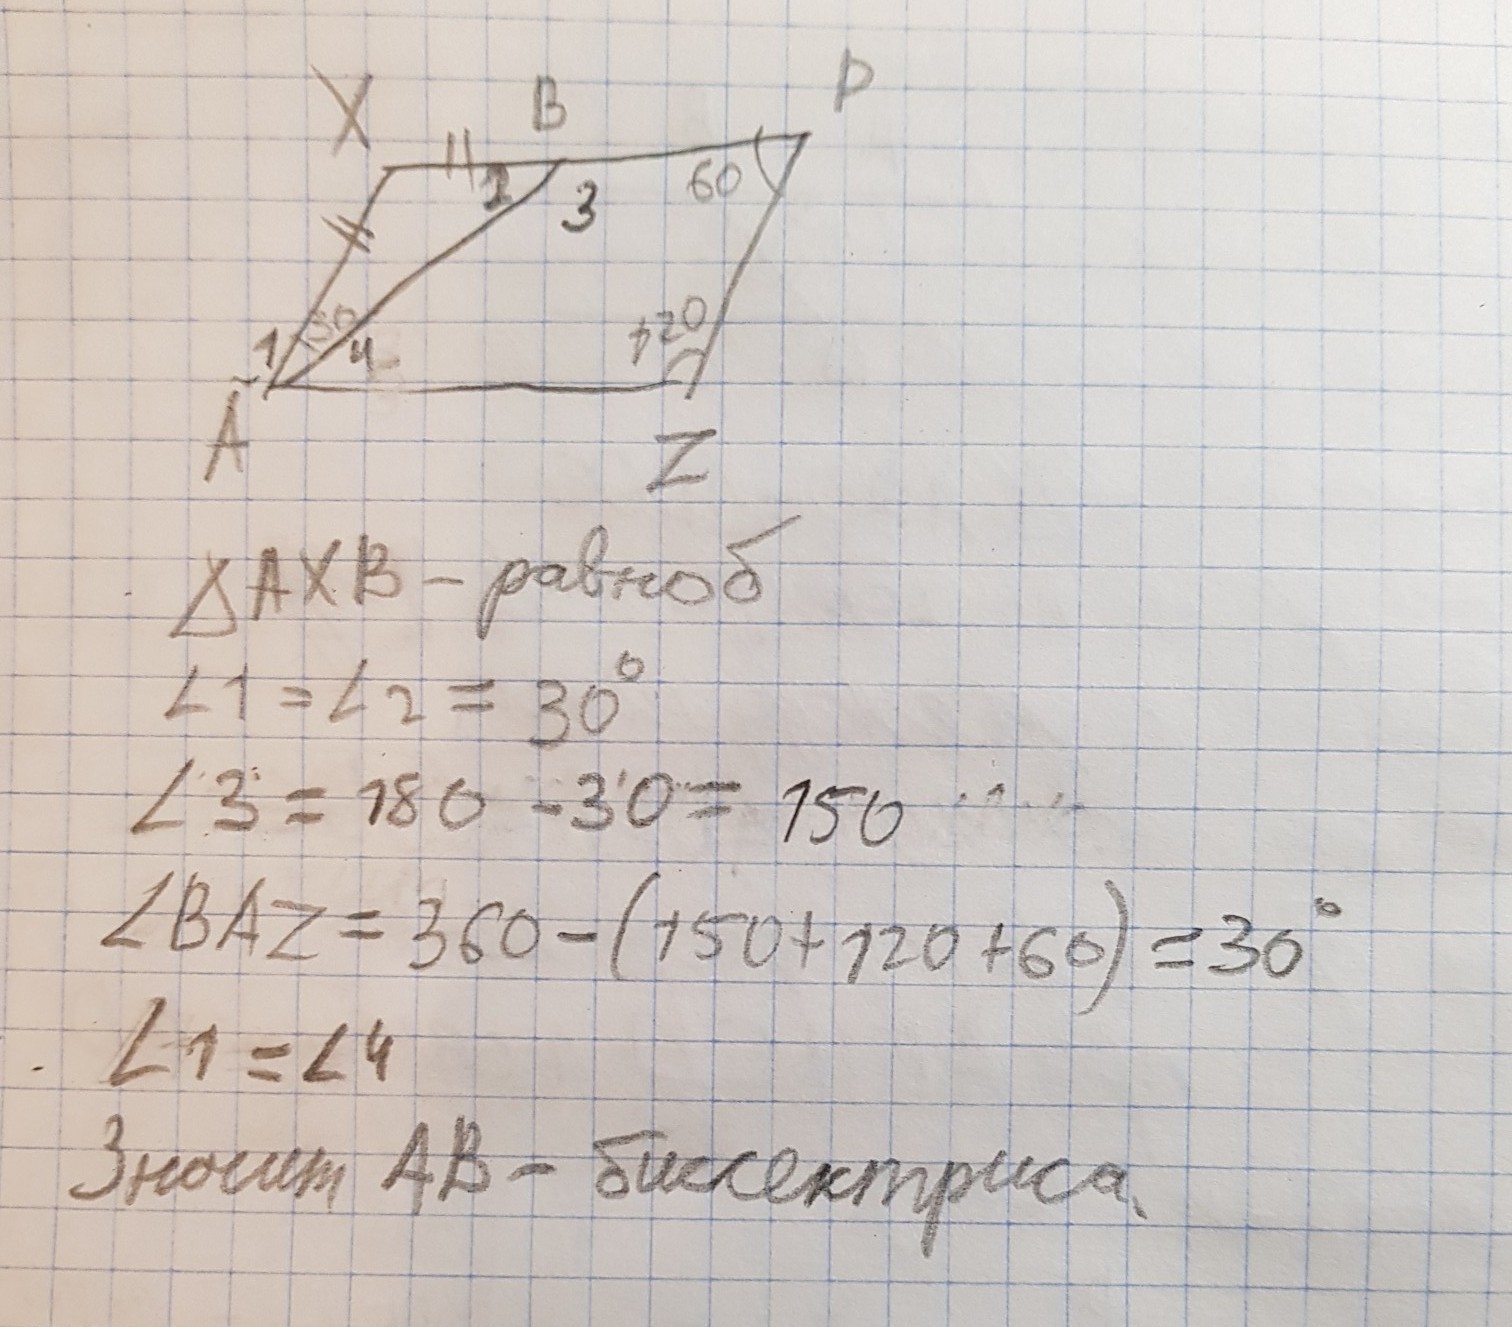 X B P
2 3 60
1 30 4 120
A Z
△AXB - равноб
∠1 = ∠2 = 30°
∠3 = 180 - 30 = 150
∠BAZ = 360 - (150 + 120 + 60) = 30°
∠1 = ∠4
Зночит AB - биссектриса.